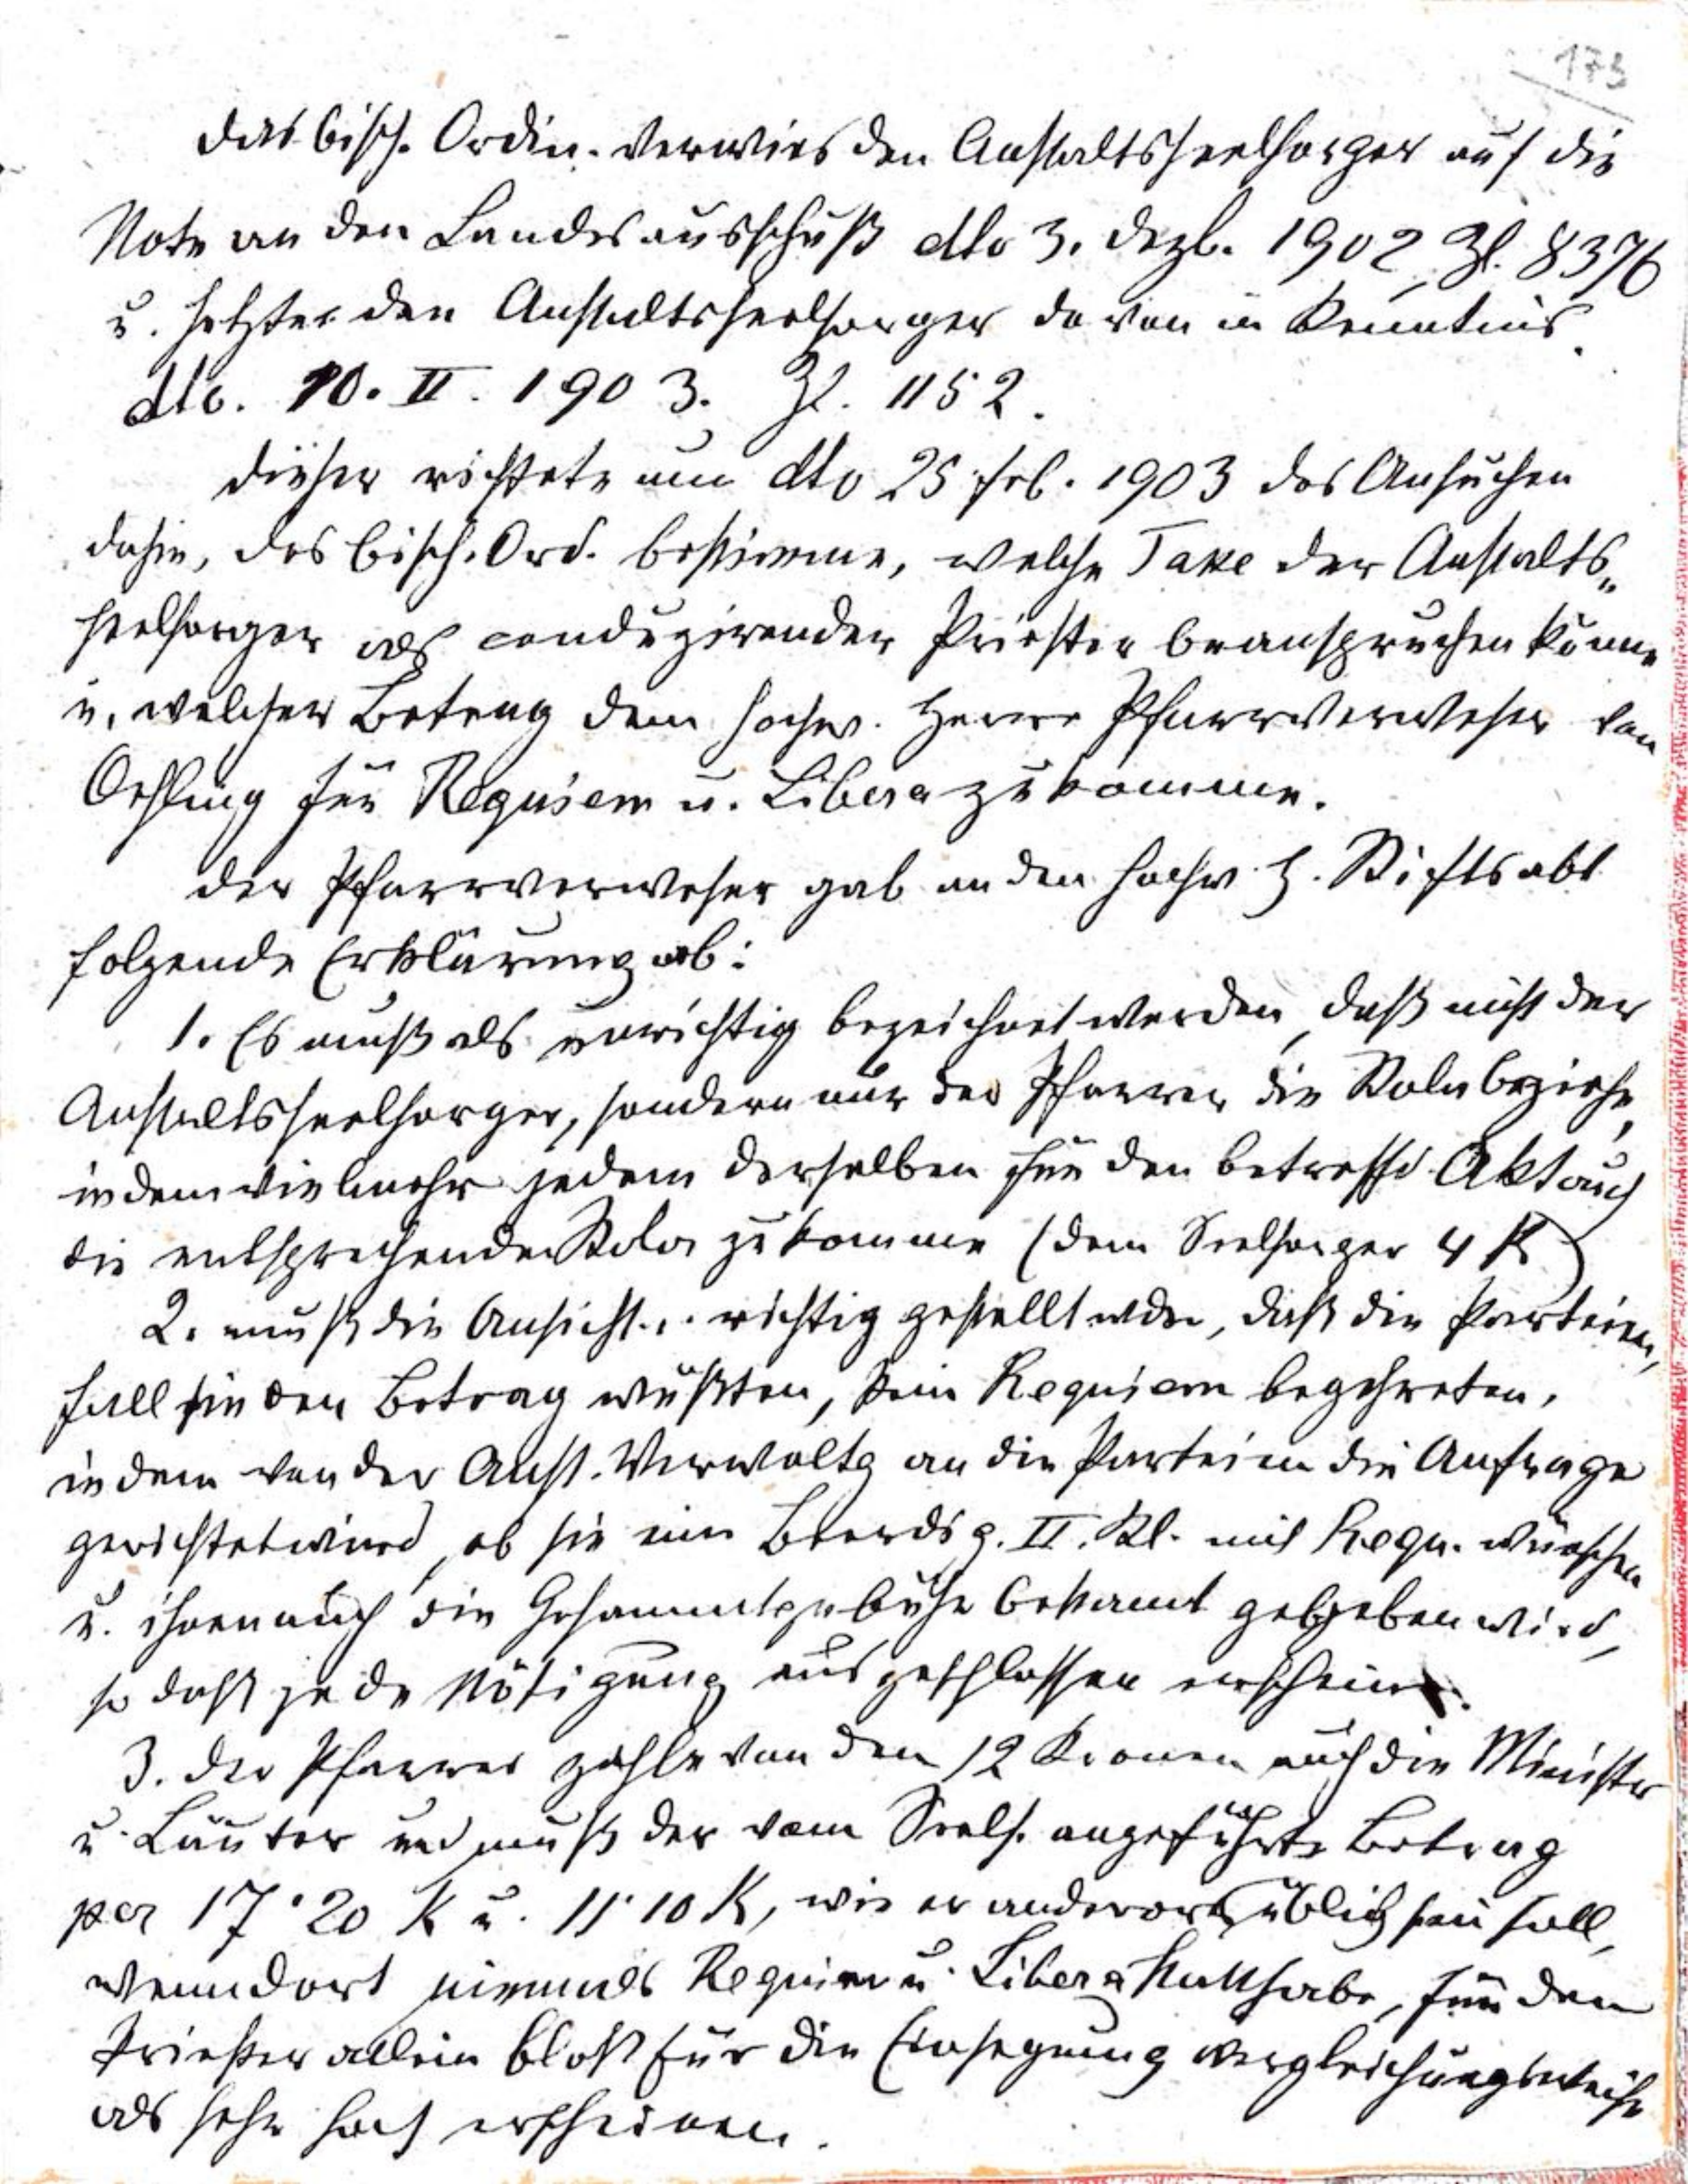 173
Das bisch. Ordin. verwies den Anstaltsseelsorger auf die
Note an den Landesausschuß dto 3. Dezb. 1902, Zl. 8376
u. setzte den Anstaltsseelsorger davon in Kenntnis
dto. 10. II. 1903. Zl. 1152.
Dieser richtete nun dto 25 Feb. 1903 das Ansuchen
dahin, das bisch. Ord. bestimme, welche Taxe der Anstalts„
seelsorger als conduzirender Priester beanspruchen könne
u. welcher Betrag dem hochw. Herrn Pfarrverweser von
Oehling für Requiem u. Libera zukomme.
Der Pfarrverweser gab an den hochw. H. Stiftsabt
folgende Erklärung ab:
1. Es muß als unrichtig bezeichnet werden, daß nicht der
Anstaltsseelsorger, sondern nur der Pfarrer die Stola beziehe,
indem vielmehr jedem derselben für den betreffd. Akt auch
die entsprechende Stola zukomme (dem Seelsorger 4 K)
2. muß die Ansicht .. richtig gestellt wdn, daß die Parteien,
fall sie den Betrag wüßten, kein Requiem begehreten,
indem von der Anst. Verwaltg an die Parteien die Anfrage
gerichtet wird, ob sie ein Beerdig. II. Kl. mit Requ. wünschen
u. ihnen auch die Gesammtgebühr bekannt gegeben wird,
so daß jede Nötigung ausgeschlossen erscheine.
3. Der Pfarrer zahle von den 12 Kronen auch die Ministr
u. Läuter und muß der vom Seels. angeführte Betrag
per 17·20 K u. 11·10 K, wie er anderorts üblich sein soll,
wenn dort niemals Requiem u. Libera statthabe, für den
Priester allein bloß für die Einsegnung vergleichungsweise
als sehr hoch erscheinen.